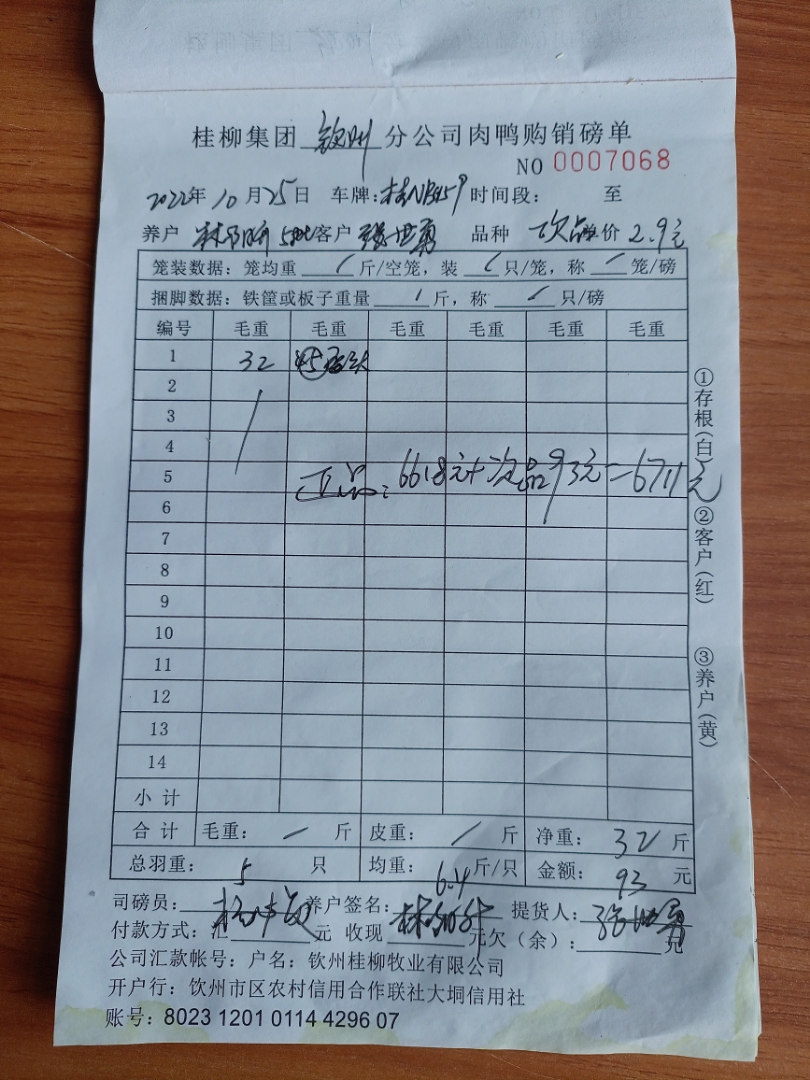 桂柳集团 钦州 分公司肉鸭购销磅单
NO 0007068
2022年10月25日 车牌: 时间段: 至
养户 客户 张世勇 品种 次品 单价 2.9元
笼装数据: 笼均重 / 斤/空笼, 装 / 只/笼, 称 / 笼/磅
捆脚数据: 铁筐或板子重量 / 斤, 称 / 只/磅
编号 毛重 毛重 毛重 毛重 毛重 毛重
1 32
2
3
4
5
正品: 6618元+次品93元=6711元
6
7
8
9
10
11
12
13
14
小计
合计 毛重: / 斤 皮重: / 斤 净重: 32 斤
总羽重: 5 只 均重: 6.4 斤/只 金额: 93 元
司磅员: 养户签名: 提货人: 张世勇
付款方式: 汇 元 收现 元 欠(余): 元
公司汇款帐号: 户名: 钦州桂柳牧业有限公司
开户行: 钦州市区农村信用合作联社大垌信用社
账号: 8023 1201 0114 4296 07
①存根(白) ②客户(红) ③养户(黄)